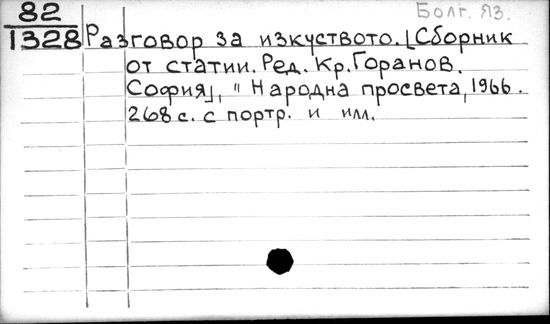 82 Болг. яз.
1328 Разговор за изкуството. [Сборник
от статии. Ред. Кр. Горанов.
София], "Народна просвета, 1966.
268 с. с портр. и илл.